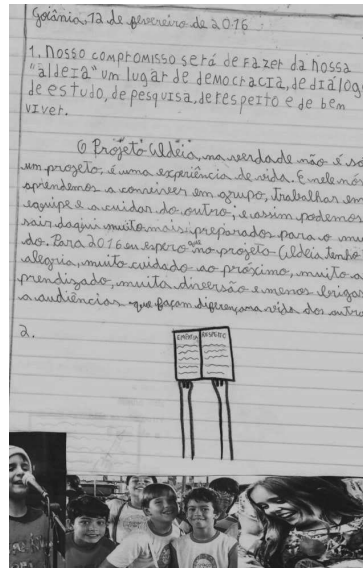 Goiânia, 12 de fevereiro de 2016
1. Nosso compromisso será de fazer da nossa
"aldeia" um lugar de democracia, de diálogo
de estudo, de pesquisa, de respeito e de bem
viver.
O Projeto Aldeia, na verdade não é só
um projeto, é uma experiência de vida. E nele nós
aprendemos a conviver em grupo, trabalhar em
equipe e a cuidar do outro, e assim podemos
sair daqui muito mais preparados para o mun
do. Para 2016 eu espero que no projeto Aldeia tenha
alegria, muito cuidado ao próximo, muito a
prendizado, muita diversão e menos brigas
a audiências que façam diferença na vida dos outro
2.
EMPATIA RESPEITO